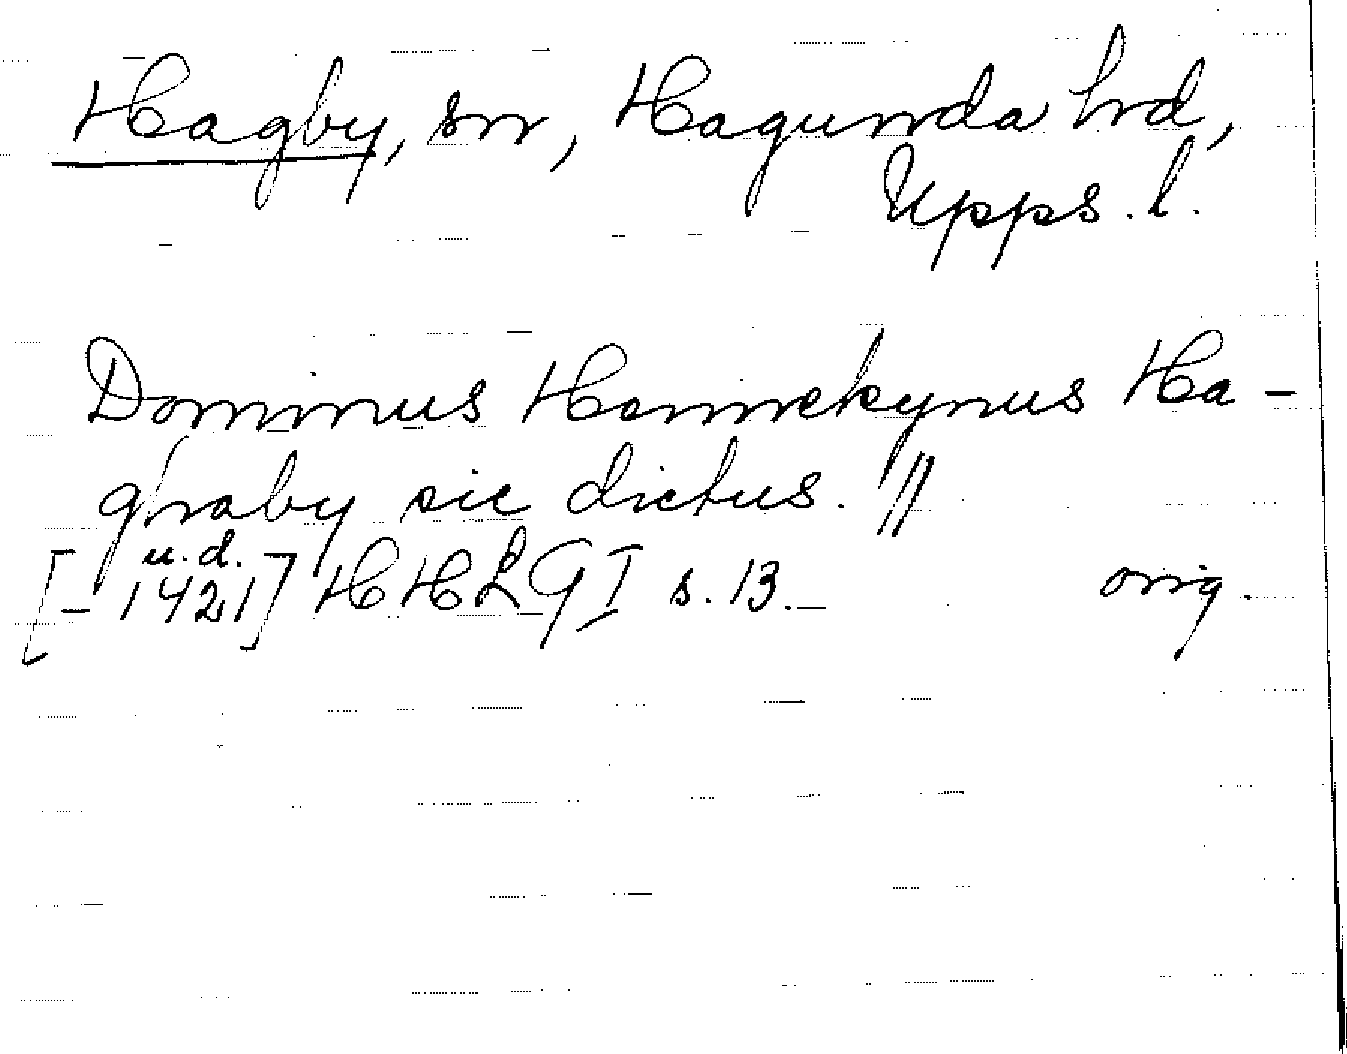 Hagby, sn, Hagunda hrd,
Upps. l.
Dominus Hannekynus Ha-
ghraby sic dictus. //
u.d.
[-1421] HHLG I s. 13. orig.